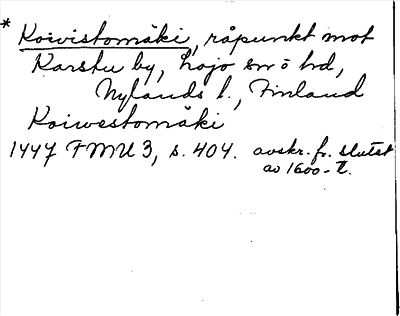 * Koivistomäki, råpunkt mot
Karstu by, Lojo sn o hd,
Nylands l., Finland
Koiwestomäki
1447 FMU 3, s. 404. avskr. fr. slutet
av 1600-t.